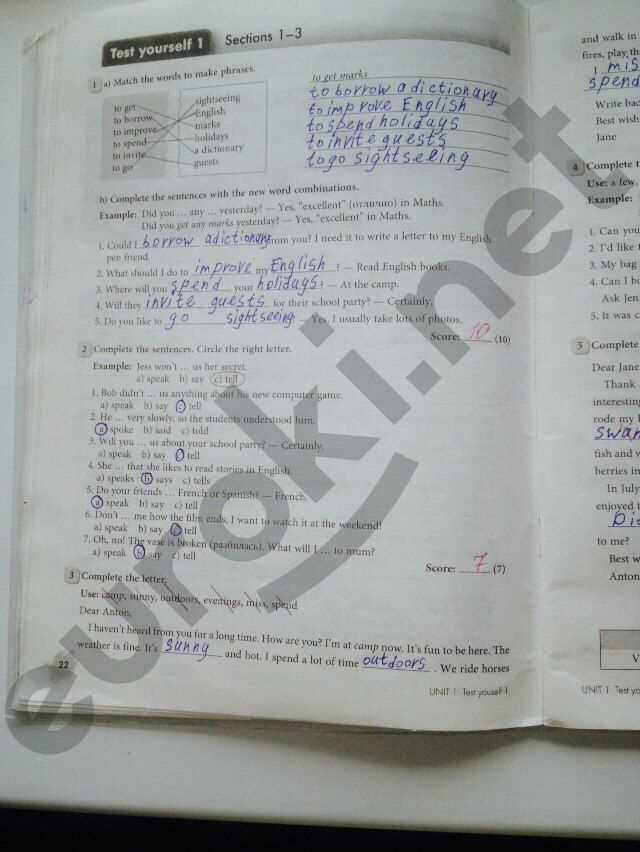 Test yourself 1 Sections 1–3
1 a) Match the words to make phrases.
to get
to borrow
to improve
to spend
to invite
to go
sightseeing
English
marks
holidays
a dictionary
guests
to get marks
to borrow a dictionary
to improve English
to spend holidays
to invite guests
to go sightseeing
b) Complete the sentences with the new word combinations.
Example: Did you ... any ... yesterday? — Yes, "excellent" (отлично) in Maths.
Did you get any marks yesterday? — Yes, "excellent" in Maths.
1. Could I borrow a dictionary from you? I need it to write a letter to my English
pen friend.
2. What should I do to improve my English? — Read English books.
3. Where will you spend your holidays? — At the camp.
4. Will they invite guests for their school party? — Certainly.
5. Do you like to go sightseeing Yes, I usually take lots of photos.
Score: 10 (10)
2 Complete the sentences. Circle the right letter.
Example: Jess won't ... us her secret.
a) speak b) say c) tell
1. Bob didn't ... us anything about his new computer game.
a) speak b) say c) tell
2. He ... very slowly, so the students understood him.
a) spoke b) said c) told
3. Will you ... us about your school party? — Certainly.
a) speak b) say c) tell
4. She ... that she likes to read stories in English.
a) speaks b) says c) tells
5. Do your friends ... French or Spanish? — French.
a) speak b) say c) tell
6. Don't ... me how the film ends. I want to watch it at the weekend!
a) speak b) say c) tell
7. Oh, no! The vase is broken (разбилась). What will I ... to mum?
a) speak b) say c) tell
Score: 7 (7)
3 Complete the letter.
Use: camp, sunny, outdoors, evenings, miss, spend
Dear Anton,
I haven't heard from you for a long time. How are you? I'm at camp now. It's fun to be here. The
weather is fine. It's sunny and hot. I spend a lot of time outdoors. We ride horses
22
UNIT 1 Test youself 1
and walk in
fires, play th
I mis
spend
Write bac
Best wish
Jane
4 Complete t
Use: a few,
Example:
1. Can you
2. I'd like t
3. My bag
4. Can I b
Ask Jen
5. It was c
5 Complete
Dear Jane
Thank
interesting
rode my b
swam
fish and w
berries in
In July
enjoyed t
pic
to me?
Best w
Anton
V
UNIT 1 Test yo
euroki.net